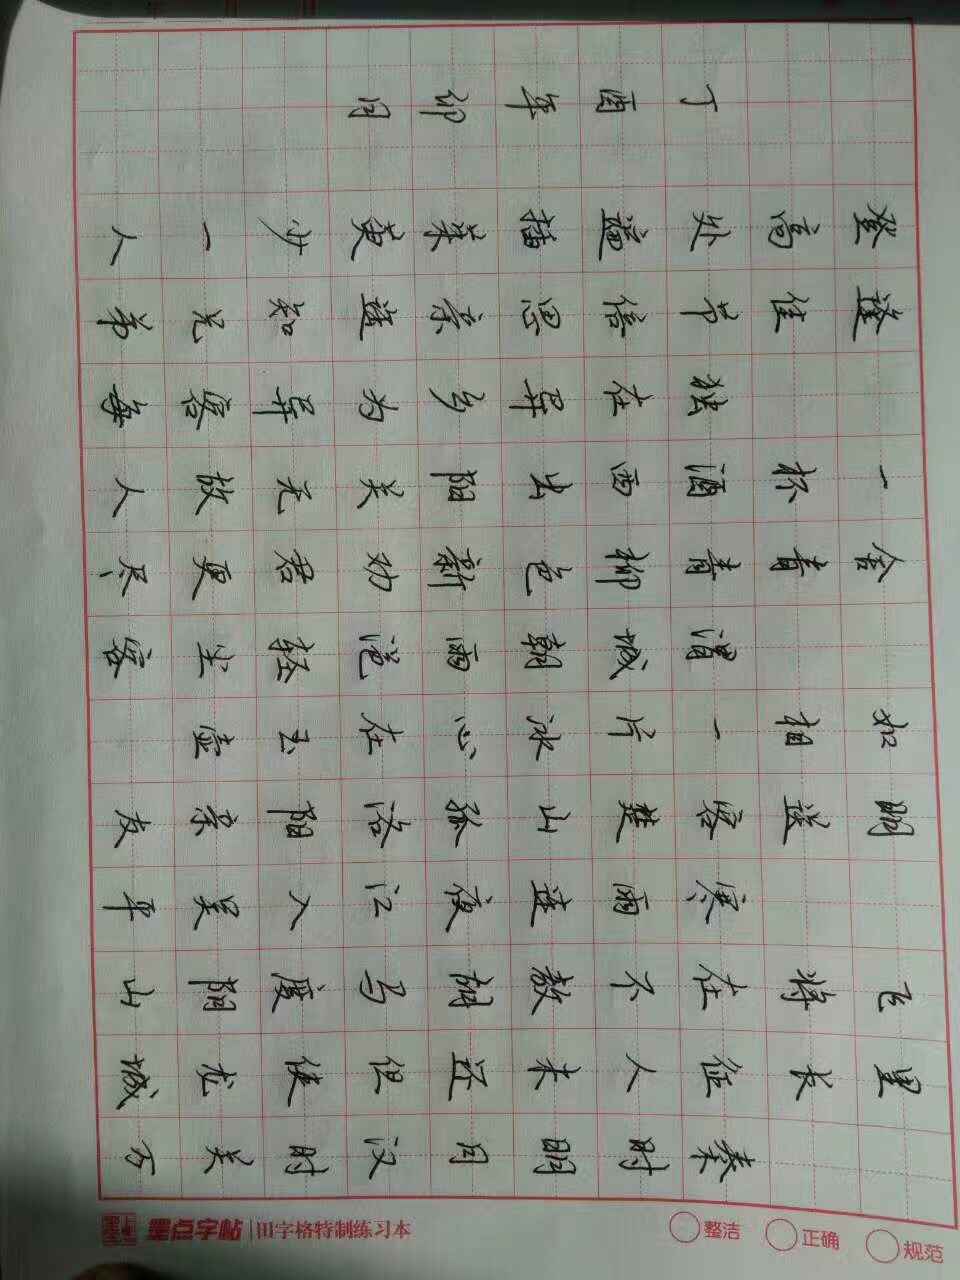 秦时明月汉时关万
里长征人未还但使龙城
飞将在不教胡马度阴山
寒雨连夜江入吴平
明送客楚山孤洛阳亲友
如相一片冰心在玉壶
渭城朝雨浥轻尘客
舍青青柳色新劝君更尽
一杯酒西出阳关无故人
独在异乡为异客每
逢佳节倍思亲遥知兄弟
登高处遍插茱萸少一人
丁酉年卯月
墨点字帖 田字格特制练习本
整洁 正确 规范